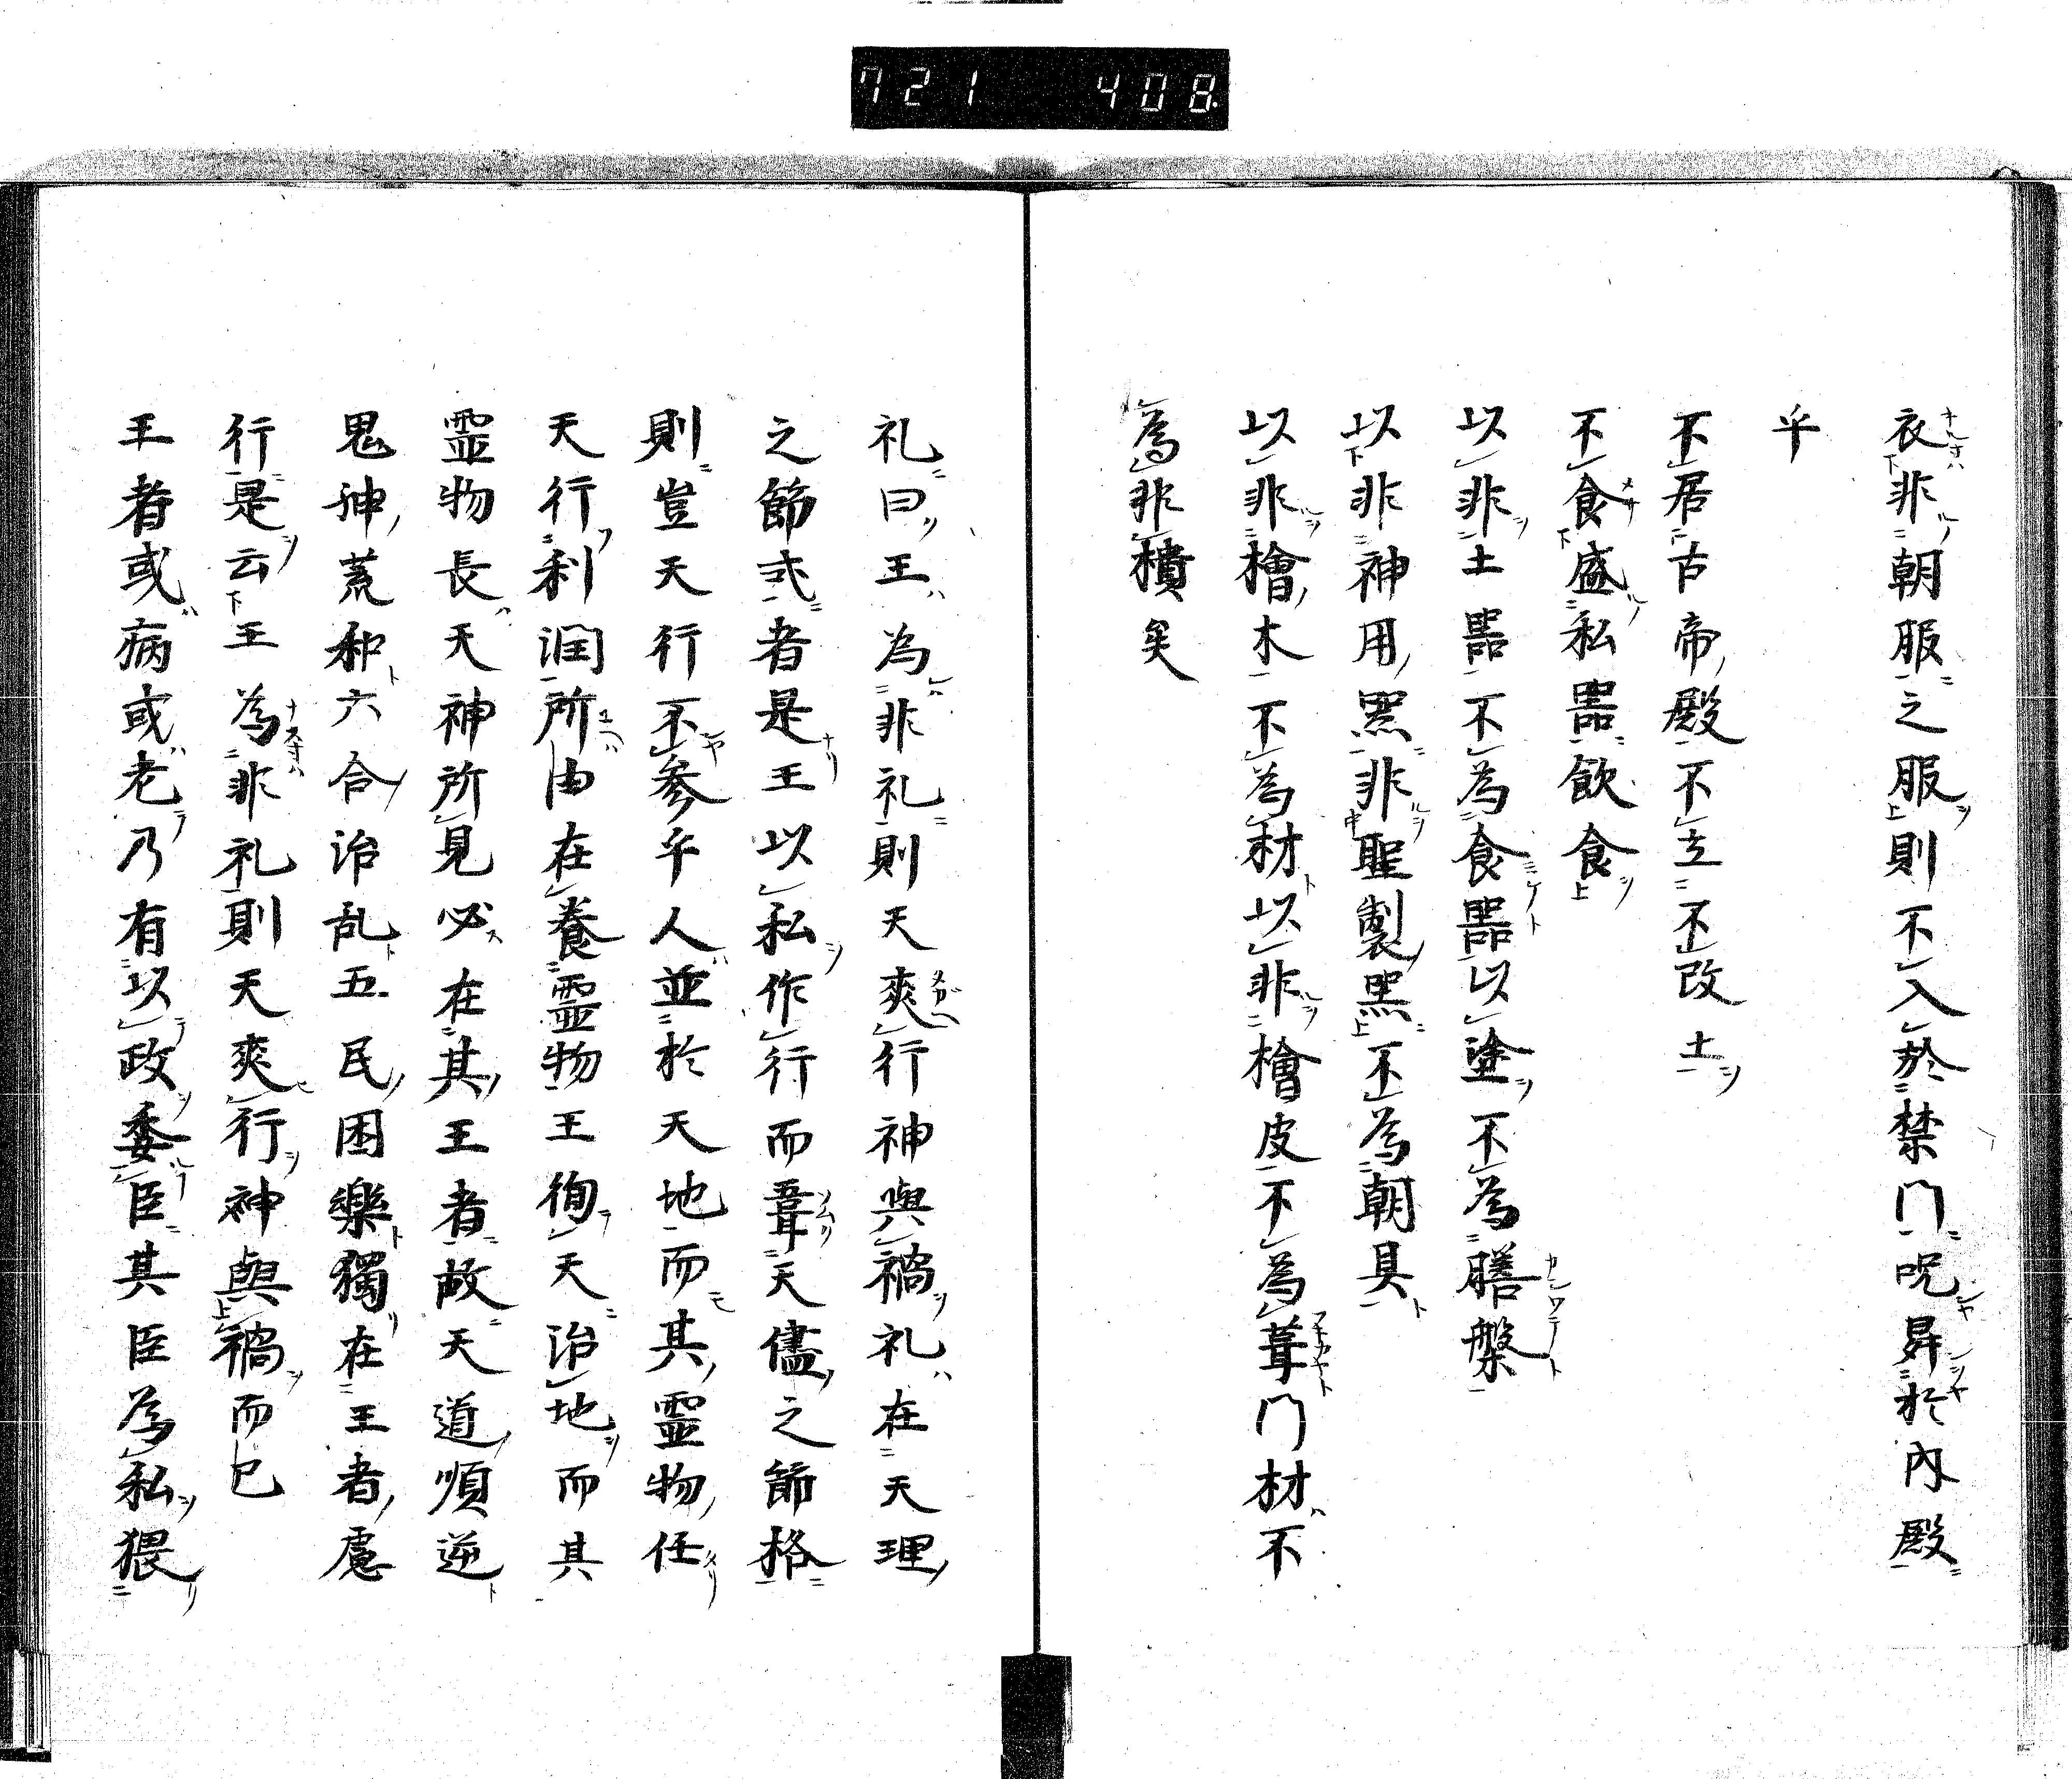 721 408
衣非朝服之服則不入於禁門呪昇於內殿
乎
不居古帝殿不立不改土
不食盛私噐飲食
以非土噐不為食噐以塗不為膳槃
以非神用噐非聖製噐不為朝具
以非檜木不為材以非檜皮不為葺門材不
為非樻矣
礼曰王為非礼則天爽行神與禍礼在天理
之節式者是王以私作行而葺天儘之節格
則豈天行不参乎人並於天地而其霊物任
天行利潤所由在養霊物王徇天治地而其
霊物長天神所見必在其王者故天道順逆
鬼神荒和六合治乱五民困樂獨在王者慮
行是云王為非礼則天爽行神與禍而已
王者或病或老乃有以政委臣其臣為私猥